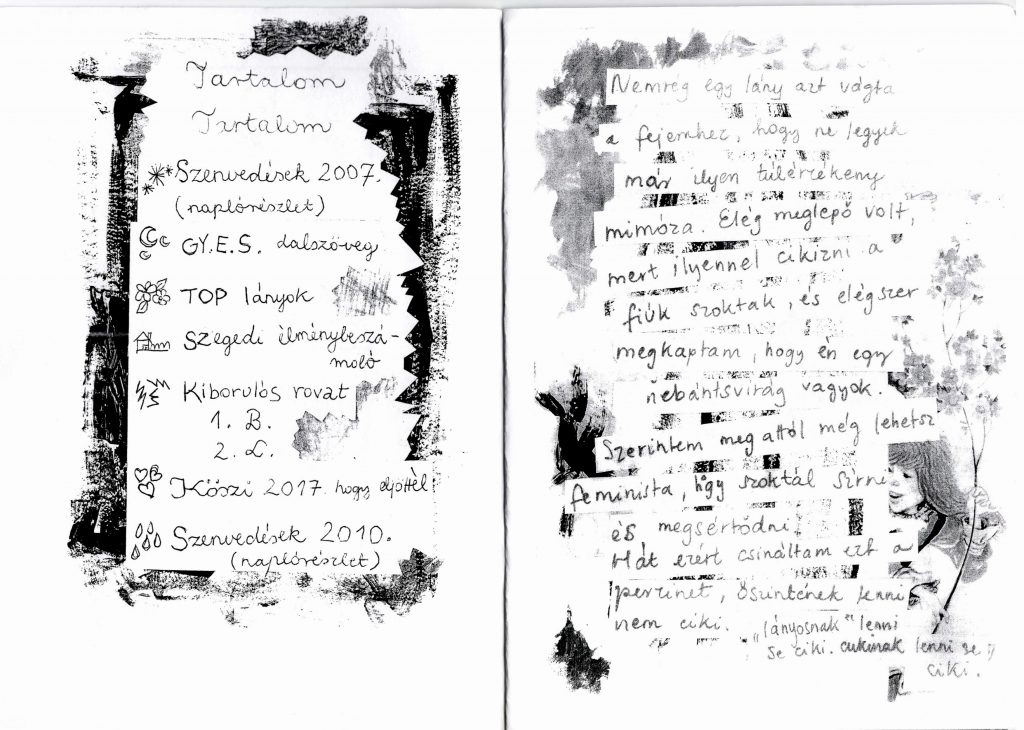 Tartalom
Tartalom
Szenvedések 2007.
(naplórészlet)
GY.E.S. dalszöveg
TOP lányok
Szegedi élménybeszá-
moló
Kiborulós rovat
1. B.
2. L.
Köszi 2017. hogy eljöttél
Szenvedések 2010.
(naplórészlet)
Nemrég egy lány azt vágta
a fejemhez, hogy ne legyek
már ilyen túlérzékeny
mimóza. Elég meglepő volt,
mert ilyennel cikizni a
fiúk szoktak, és elégszer
megkaptam, hogy én egy
nebántsvirág vagyok.
Szerintem meg attól még lehetsz
feminista, hogy szoktál sírni
és megsértődni.
Hát ezért csináltam ezt a
perzinet, őszintének lenni
nem ciki. „lányosnak” lenni
se ciki. cukinak lenni se
ciki.